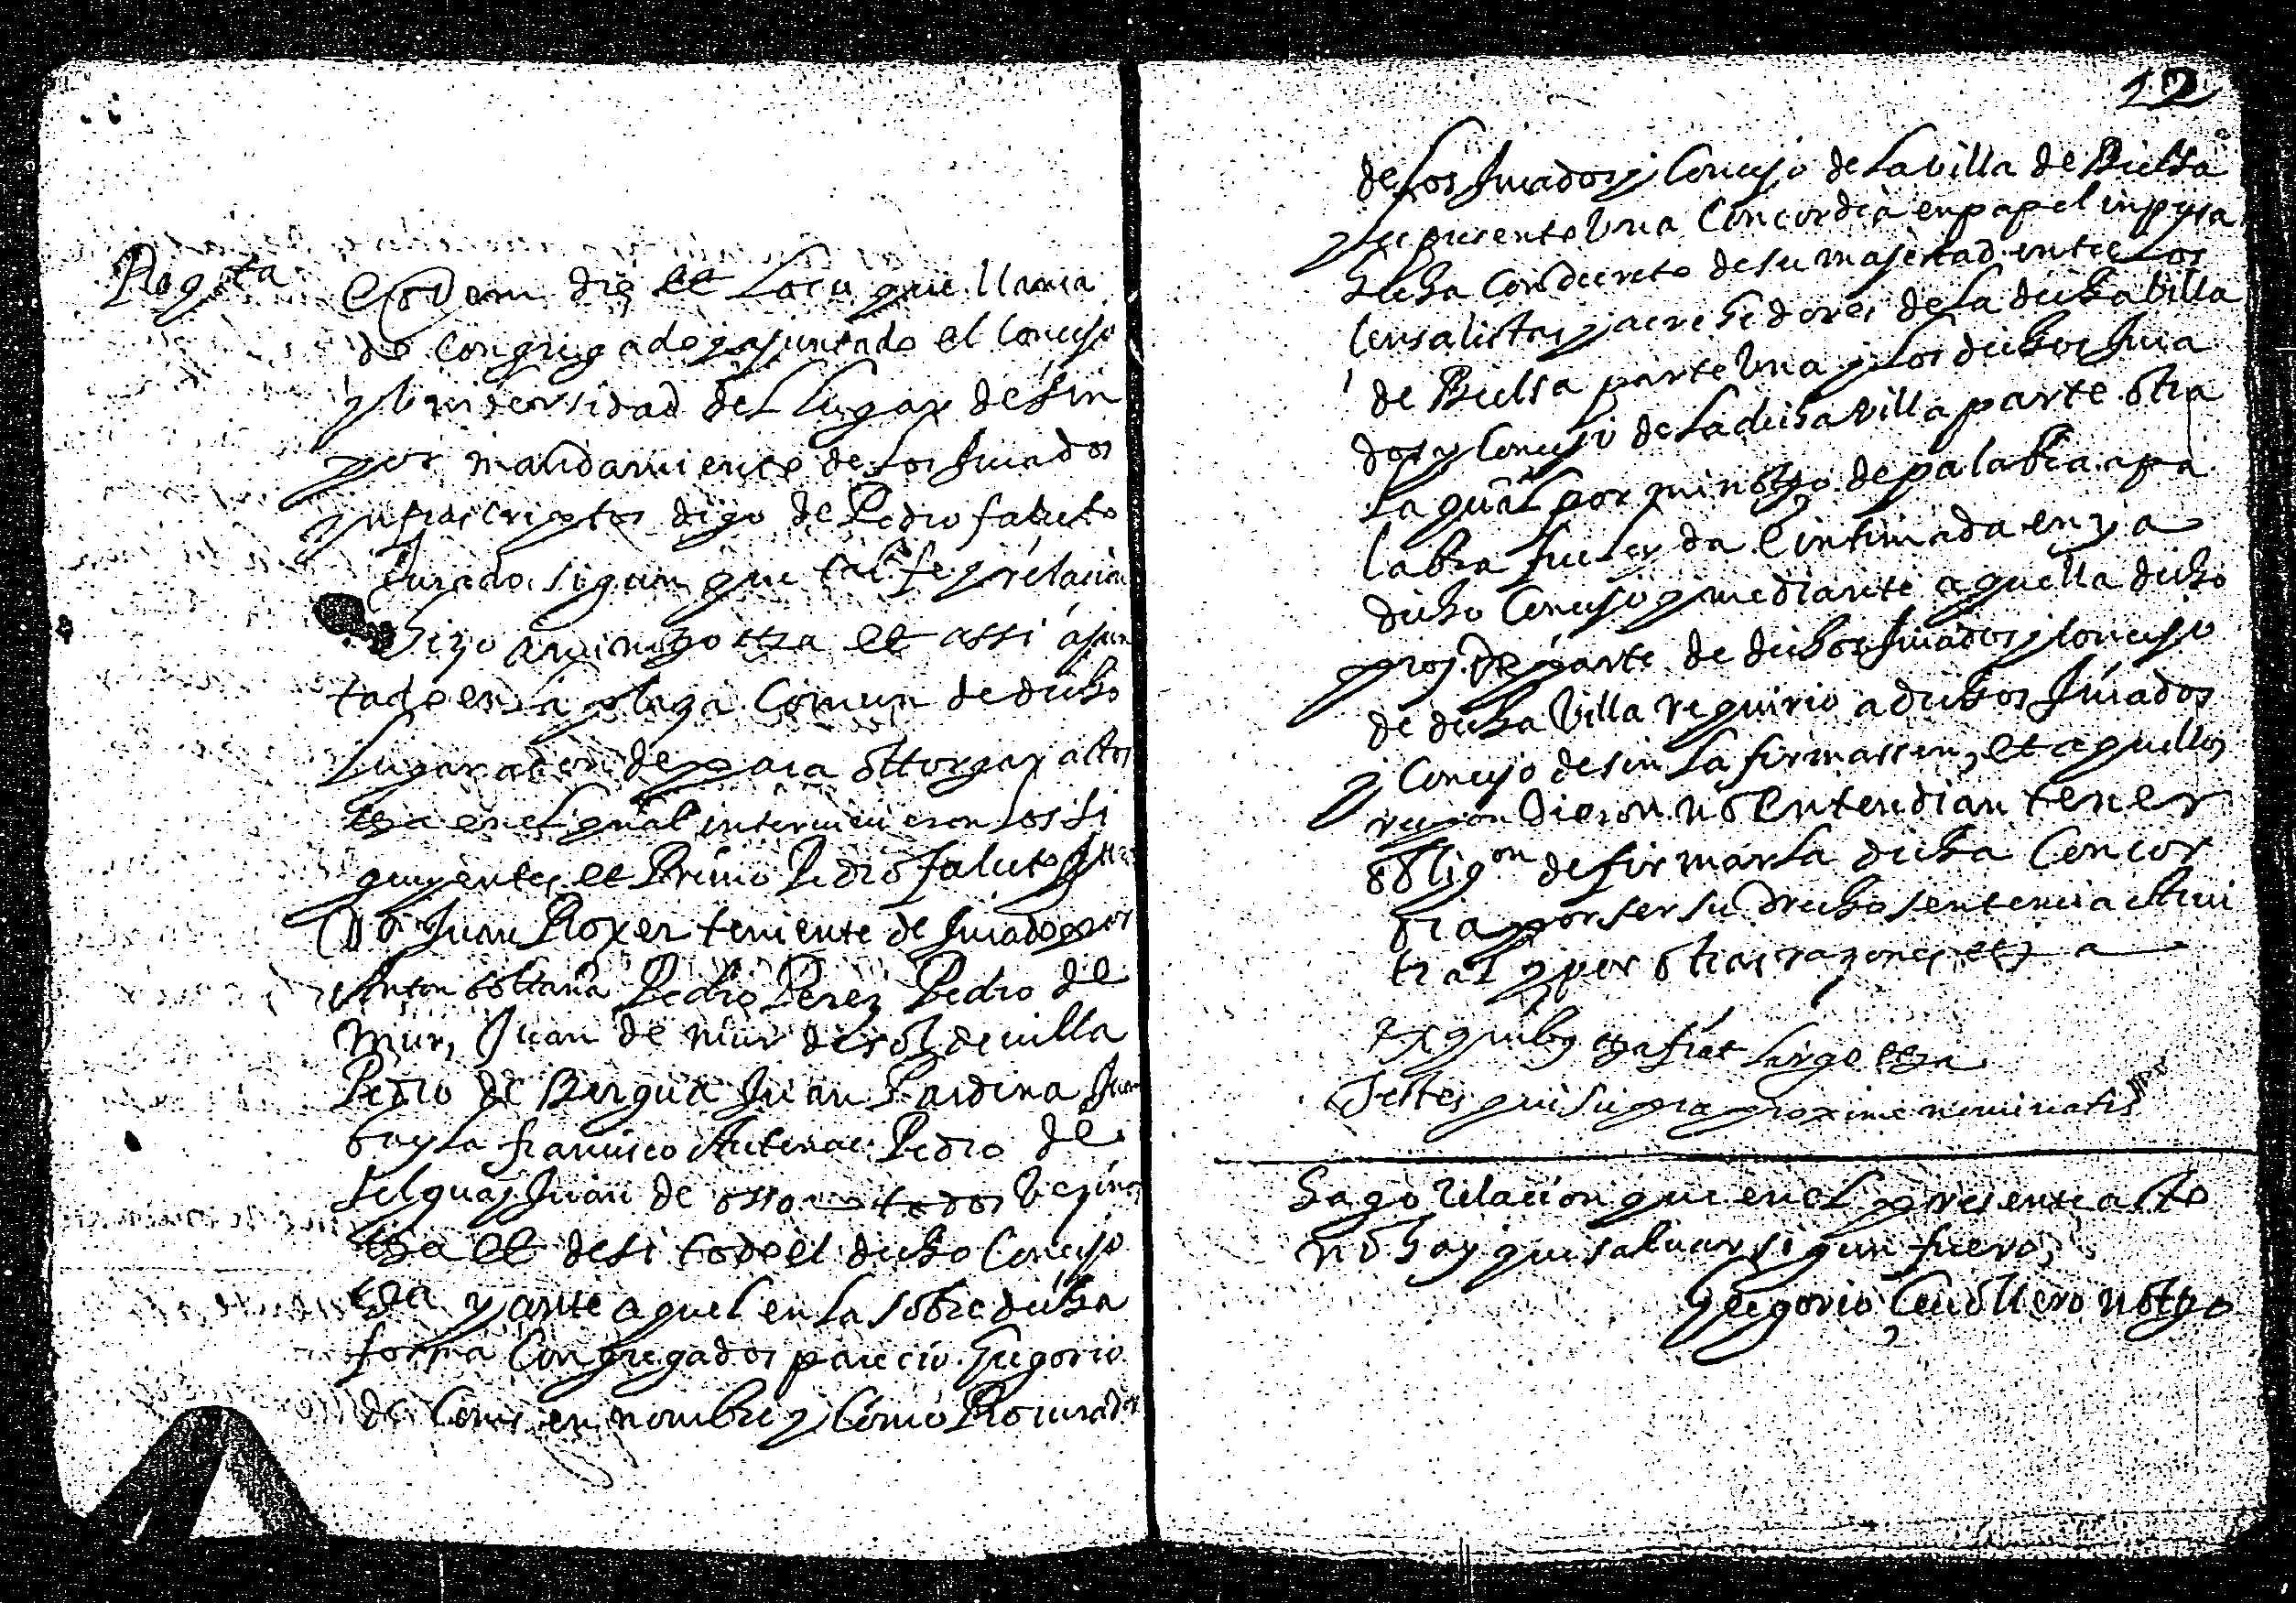 Reqta
Eodem die et Loco que llama
do Congregado y ajuntado el Concejo
y Vniversidad del Lugar de sin
por mandamiento de Los Jurados
infrascriptos digo de Pedro faluto
Jurado segun que tal fe y relacion
hizo a mi notto etza et assi ajun
tado en la plaza Comun de dicho
Lugar a don de para ottorgar actos
etza en el qual intervinieron Los si
guyentes et Primo Pedro faluto Jura
do Juan Roxer teniente de Jurado por
Anton soltana Pedro Perez Pedro de
mur, Juan de mur del sol de villa
Pedro de Bergua Juan Pardina Juan
bayla francisco Pedro de
selgua Juan de osso todos Vezinos
etza et desi todo el dicho Concejo
etza y ante aquel en la sobre dicha
forma Congregados parecio Gregorio
de en nombre y Como Procurador
12
de Los Jurados y Concejo de La villa de Bielsa
y le presento Vna Concordia en papel inpresa
hecha Con decreto de su majestad entre Los
Censalistas y acrehedores de La dicha Villa
de Bielsa parte Vna y Los dichos Jura
dos y Concejo de La dicha villa parte otra
La qual por mi notto de palabra a pa
labra fue leyda e intimada enza
dicho Concejo y mediante aquella dicho
pror. de parte de dichos Jurados y Concejo
de dicha Villa requirio a dichos Jurados
y Concejo de sin La firmassen, et aquellos
respondieron no Entendian tener
obligon de firmar La dicha Concor
dia por ser su drecho sentencia arbui
tral y por otras razones etza
Ex quibus etza fiat Large etza
Testes qui supra proxime nominatis
Hago relacion que en el presente acto
no hay que salvar segun fuero,
Gregorio notto